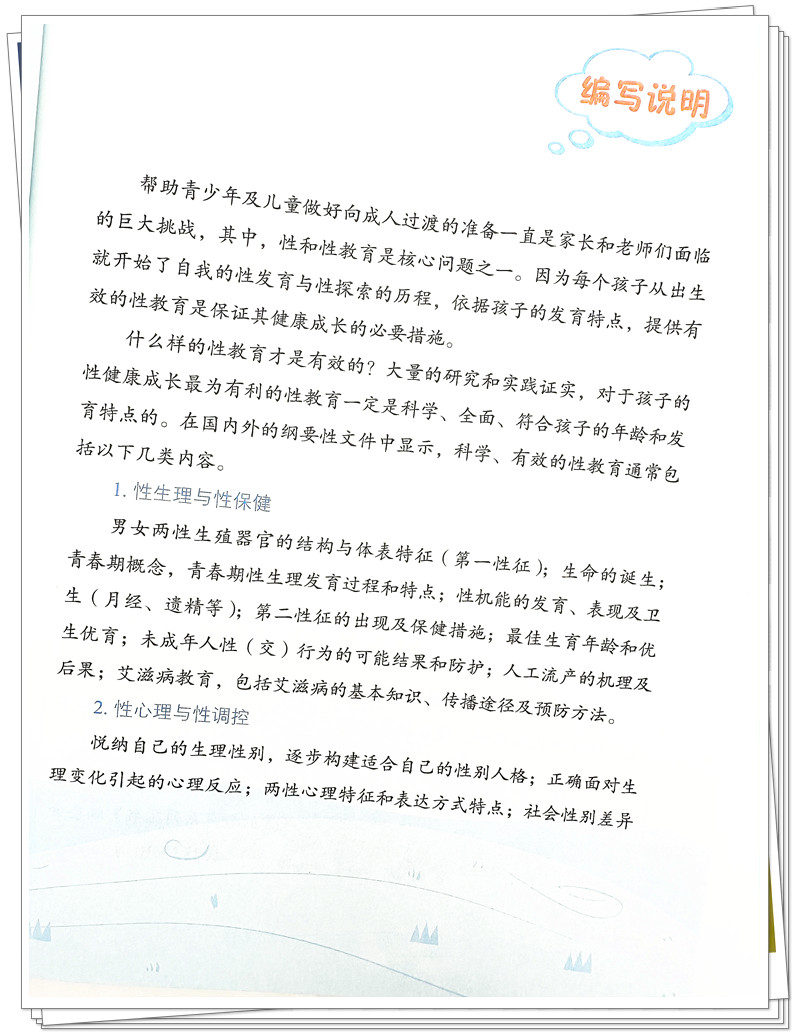 编写说明
帮助青少年及儿童做好向成人过渡的准备一直是家长和老师们面临
的巨大挑战，其中，性和性教育是核心问题之一。因为每个孩子从出生
就开始了自我的性发育与性探索的历程，依据孩子的发育特点，提供有
效的性教育是保证其健康成长的必要措施。
什么样的性教育才是有效的？大量的研究和实践证实，对于孩子的
性健康成长最为有利的性教育一定是科学、全面、符合孩子的年龄和发
育特点的。在国内外的纲要性文件中显示，科学、有效的性教育通常包
括以下几类内容。
1. 性生理与性保健
男女两性生殖器官的结构与体表特征（第一性征）；生命的诞生；
青春期概念，青春期性生理发育过程和特点；性机能的发育、表现及卫
生（月经、遗精等）；第二性征的出现及保健措施；最佳生育年龄和优
生优育；未成年人性（交）行为的可能结果和防护；人工流产的机理及
后果；艾滋病教育，包括艾滋病的基本知识、传播途径及预防方法。
2. 性心理与性调控
悦纳自己的生理性别，逐步构建适合自己的性别人格；正确面对生
理变化引起的心理反应；两性心理特征和表达方式特点；社会性别差异